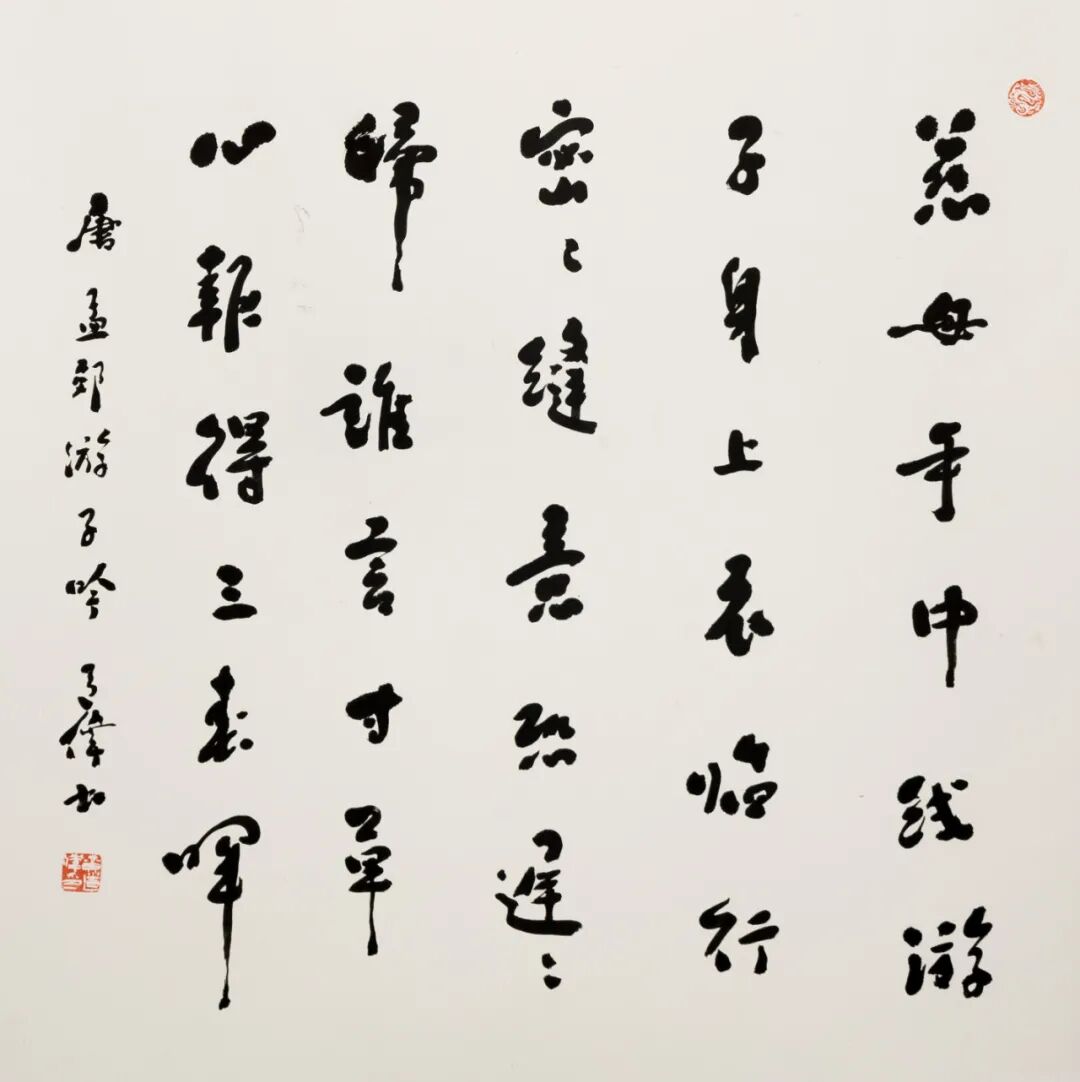 慈母手中线游
子身上衣临行
密〻縫意恐遲〻
歸誰言寸草
心報得三春暉
唐孟郊游子吟 书